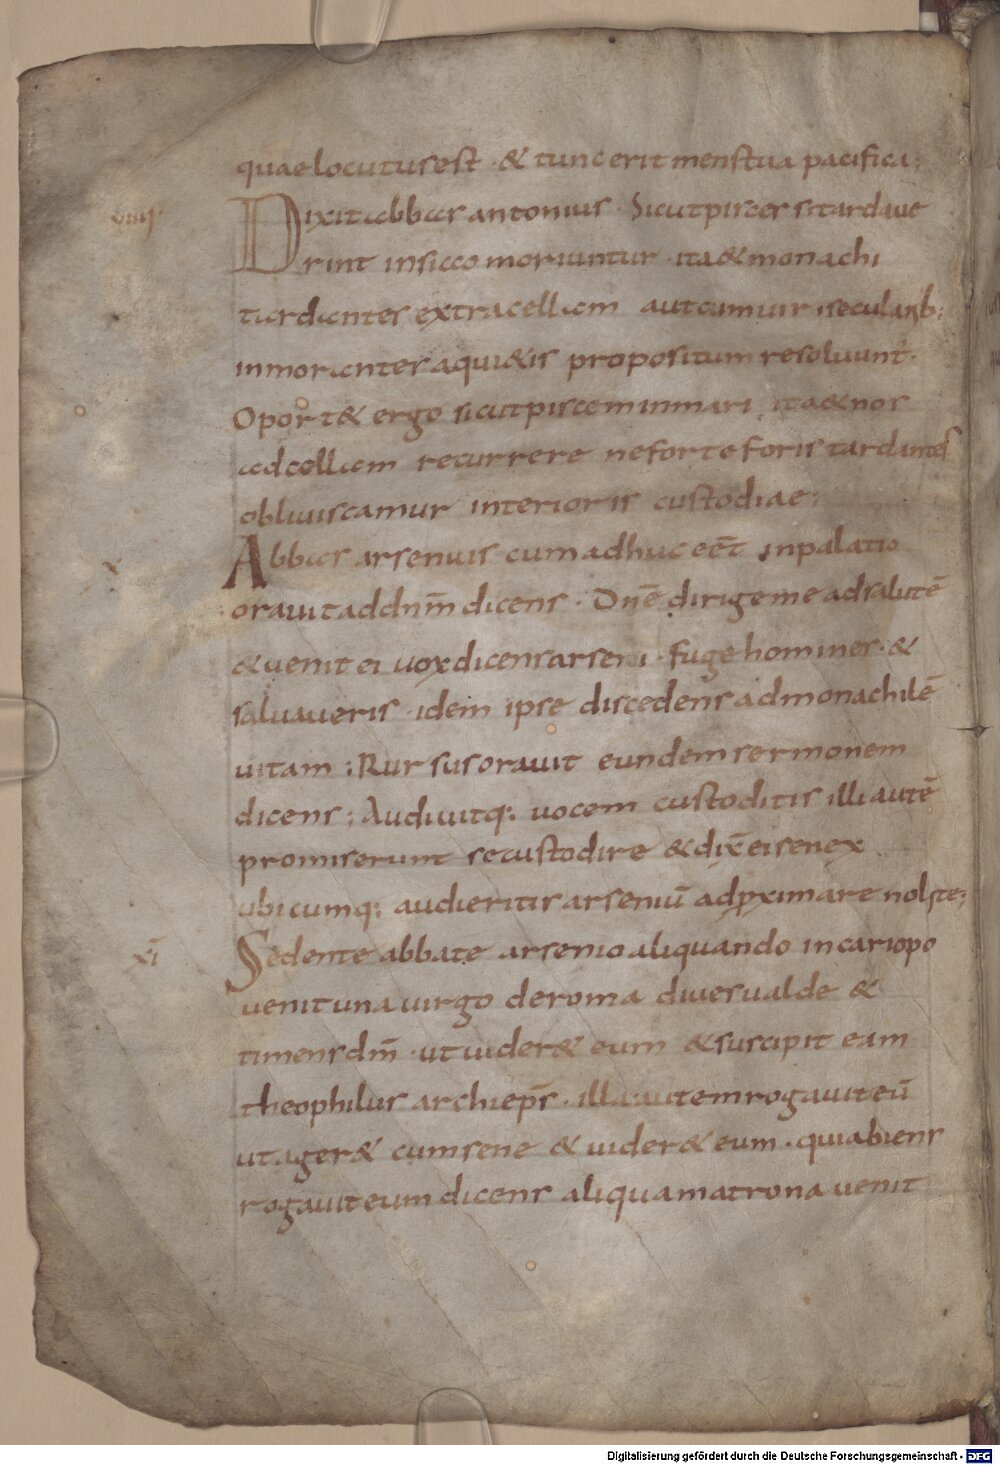 quae locutus est · & tunc erit mens tua pacifica;
viiii· Dixit abbas antonius · Sicut pisces si tardave
rint in sicco moriuntur · ita & monachi
tardantes extra cellam aut cum viris secularib;
inmorantes a qui&is propositum resolvunt·
Oport& ergo sicut piscem in mari ita & nos
ad cellam recurrere ne forte foris tardantes
obliviscamur interioris custodiae;
x Abbas arsenius cum adhuc eēt in palatio
oravit ad dnm̄ dicens · Dnē dirige me ad salutē
& venit ei vox dicens arseni · fuge homines · &
salvaveris · idem ipse discedens ad monachilē
vitam ; Rursus oravit eundem sermonem
dicens ; Audivitq; vocem custoditis illi autē
promiserunt se custodire & dix̄ ei senex
ubicumq; audieritis arseniū adꝓximare nolite;
xi Sedente abbate arsenio aliquando in cariopo
venit una virgo de roma dives valde &
timens dm̄ · ut vider& eum & suscipit eam
theophilus archiep̄s · illa autem rogavit eū
ut ager& cum sene & vider& eum · qui abiens
rogavit eum dicens aliqua matrona venit
Digitalisierung gefördert durch die Deutsche Forschungsgemeinschaft - DFG